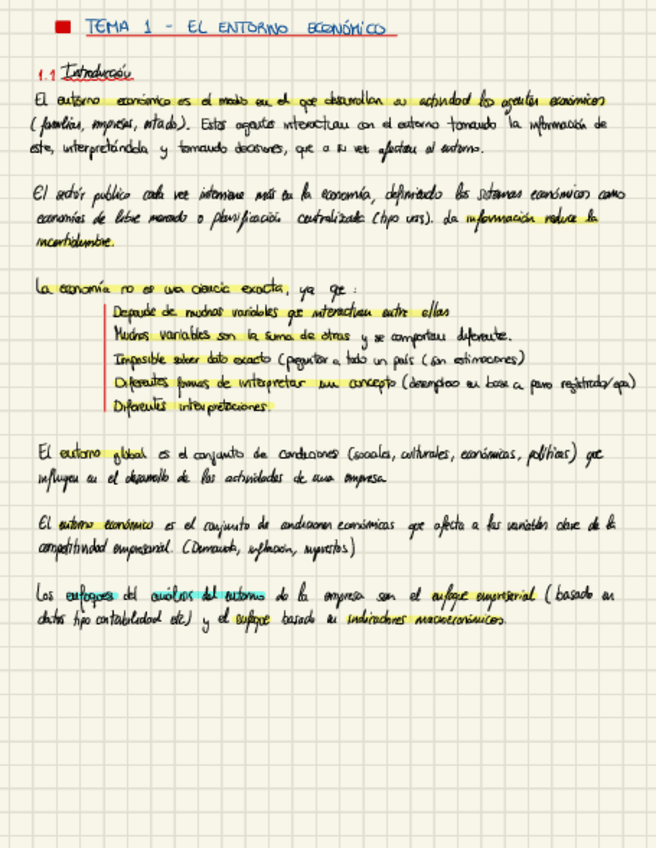 TEMA 1 - EL ENTORNO ECONÓMICO
1.1 Introducción
El entorno económico es el medio en el que desarrollan su actividad los agentes económicos
(familias, empresas, estado). Estos agentes interactuan con el entorno tomando la información de
este, interpretándola y tomando decisiones, que a su vez afectan al entorno.
El sector publico cada vez interviene más en la economía, definiendo los sistemas económicos como
economías de libre mercado o planificación centralizada (tipo urss). La información reduce la
incertidumbre.
La economía no es una ciencia exacta, ya que :
Depende de muchas variables que interactuan entre ellas
Muchas variables son la suma de otras y se comportan diferente.
Imposible saber dato exacto (preguntar a todo un país (son estimaciones)
Diferentes formas de interpretar un concepto (desempleo en base a paro registrado/epa)
Diferentes interpretaciones.
El entorno global es el conjunto de condiciones (sociales, culturales, económicas, políticas) que
influyen en el desarrollo de las actividades de una empresa
El entorno económico es el conjunto de condiciones económicas que afecta a las variables clave de la
competitividad empresarial. (Demanda, inflación, impuestos)
Los enfoques del análisis del entorno de la empresa son el enfoque empresarial (basado en
datos tipo contabilidad etc) y el enfoque basado en indicadores macroeconómicos.